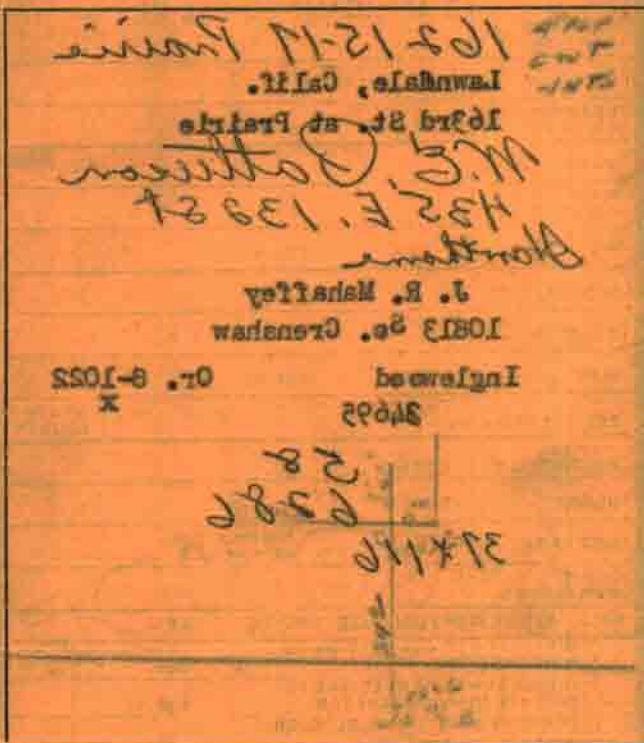 162-15-17 Prairie
Lawndale, Calif.
163rd St. at Prairie
W. E. Pattison
435 E. 132 St
Hawthorne
J. R. Mahaffey
10813 So. Crenshaw
Inglewood Or. 8-1022
x
24695
58
6286
37 x 116